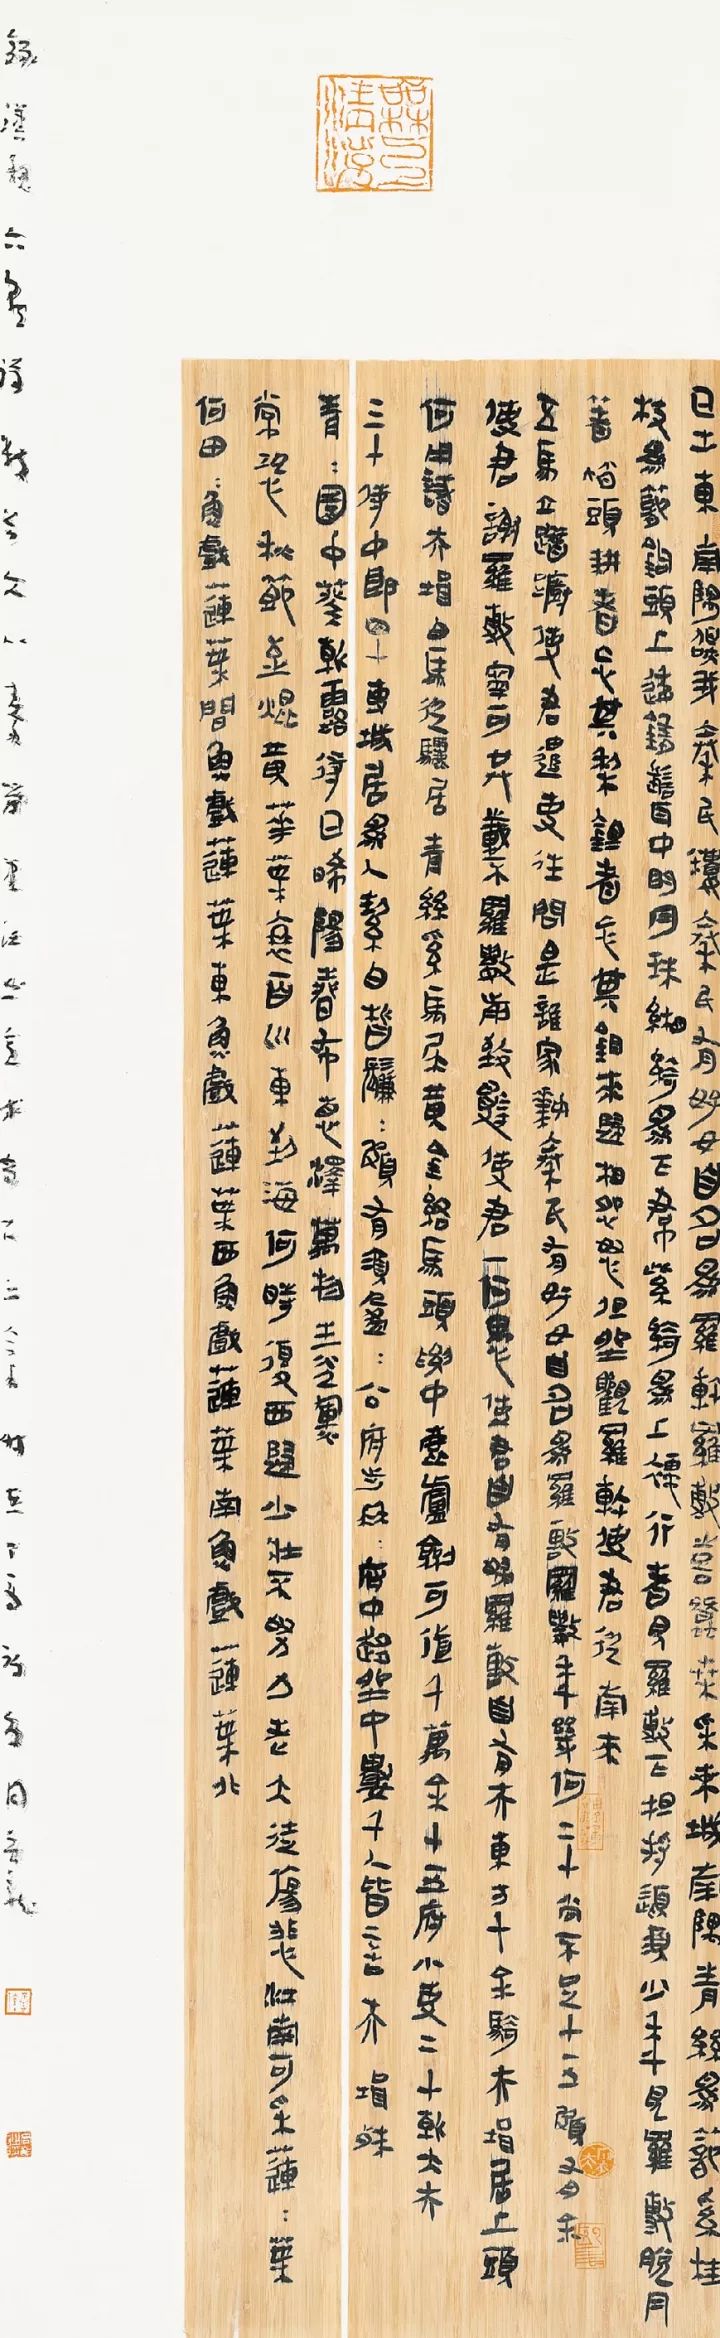 日出東南隅照我秦氏樓秦氏有好女自名為羅敷羅敷喜蠶桑采桑城南隅青絲為籠系桂
枝為籠鉤頭上倭墮髻耳中明月珠緗綺為下帬紫綺為上襦行者見羅敷下担捋髭鬚少年見羅敷脫冃
著帩頭耕者忘其犁鋤者忘其鋤來歸相怨怒但坐觀羅敷使君從南來
五馬立踟躕使君遣吏往問是誰家姝秦氏有好女自名為羅敷羅敷年幾何二十尚不足十五頗有余
使君謝羅敷寧可共載不羅敷前致辭使君一何愚使君自有婦羅敷自有夫東方千余騎夫婿居上頭
何用識夫婿白馬從驪居青絲系馬尾黃金絡馬頭腰中鹿盧劍可值千萬余十五府小吏二十朝大夫
三十侍中郎四十專城居為人潔白皙鬑：頗有須盈：公府步冉：府中趨坐中數千人皆言夫婿殊
青：園中葵朝露待日晞陽春布德澤萬物生光輝
常恐秋節至焜黃華葉衰百川東到海何時復西歸少壯不努力老大徒傷悲江南可采蓮：葉
何田：魚戲蓮葉間魚戲蓮葉東魚戲蓮葉西魚戲蓮葉南魚戲蓮葉北
錄漢魏六朝